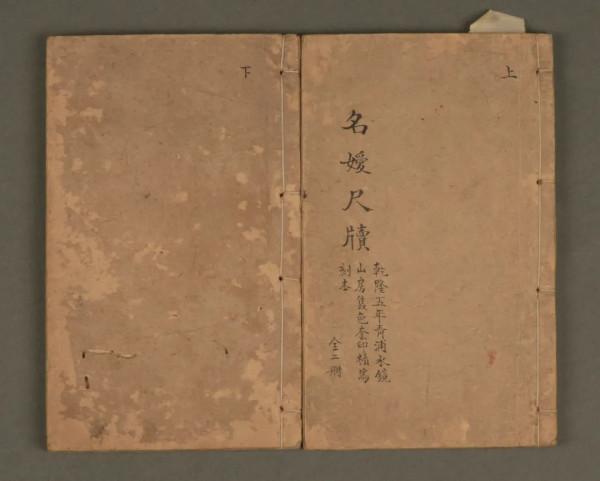 上
名媛尺牘
乾隆五年青浦水鏡
山房色套印精寫
刻本
全二冊
下